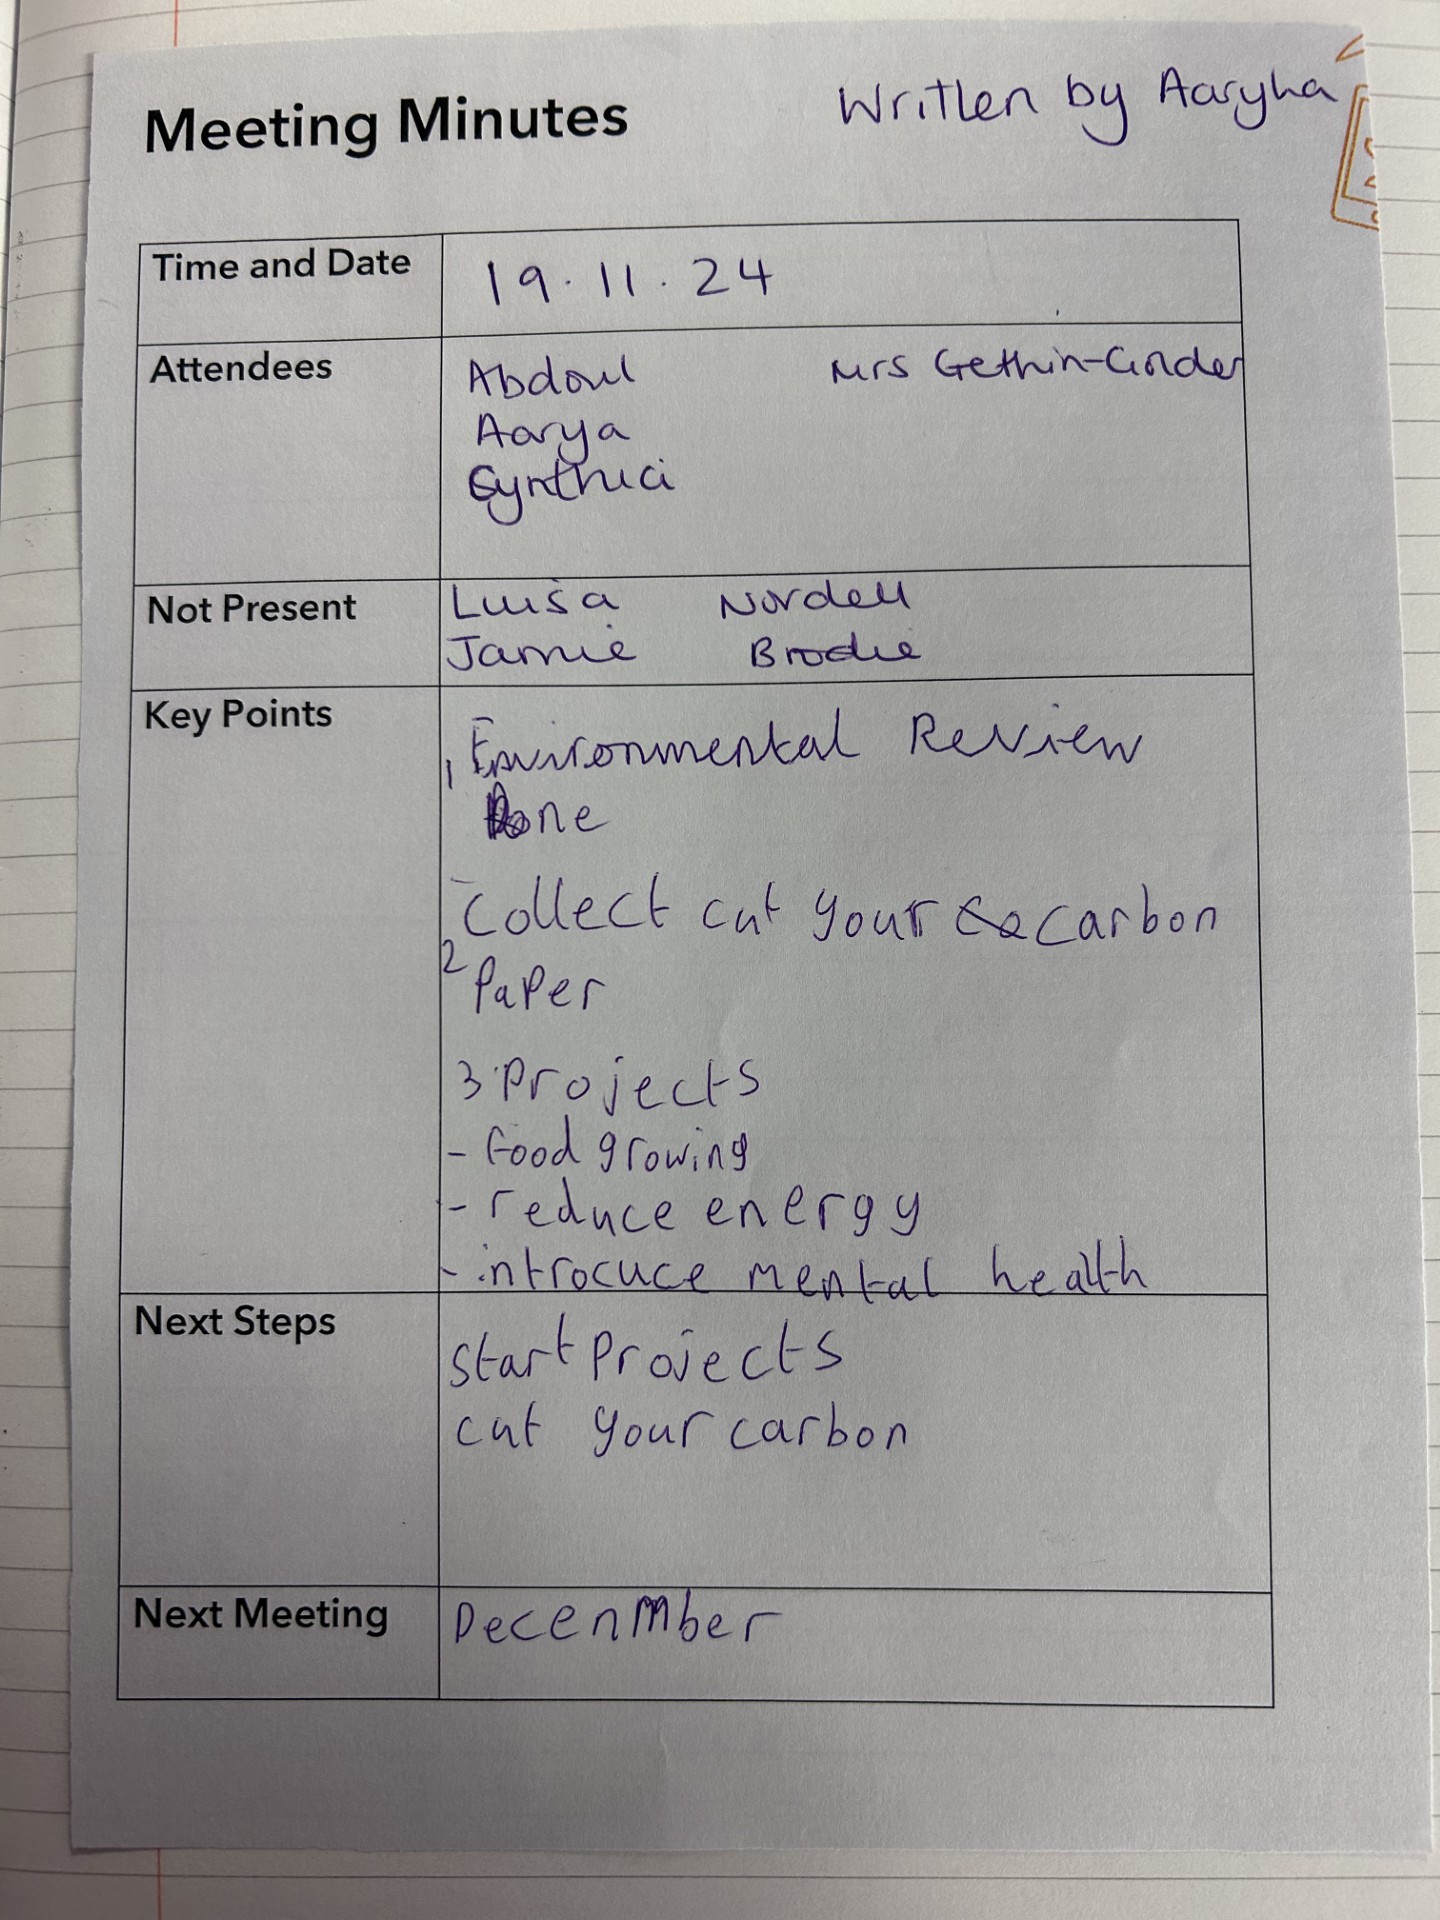 Meeting Minutes
Written by Aaryha
Time and Date
19.11.24
Attendees
Abdoul
Mrs Gethin-
Aarya
Cynthia
Not Present
Luisa Nordell
Jamie Brodie
Key Points
1 Environmental Review
Done
Collect cut your carbon
2 Paper
3 Projects
- food growing
- reduce energy
- introcuce mental health
Next Steps
start Projects
cut your carbon
Next Meeting
Decenmber